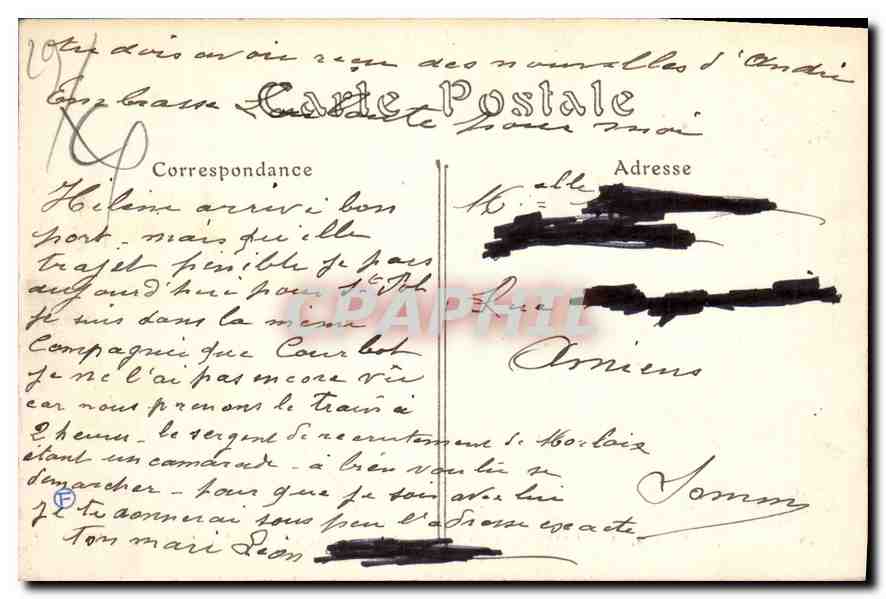 tu dois avoir reçu des nouvelles d'André
Embrasse pour moi
Carte Postale
Correspondance
Adresse
Hélène arrivé bon
port - mais quelle
trajet pénible je pars
aujourd'hui pour St Pol
je suis dans la même
Compagnie que Courbot
je ne l'ai pas encore vu
car nous prenons le train à
2 heures - le sergent de recrutement de Morlaix
étant un camarade - à bien voulu se
demarcher - pour que je sois avec lui
je te donnerai sous peu l'adresse exacte
ton mari Léon
M elle
Rue
Amiens
Somme
CPAPHIL
F